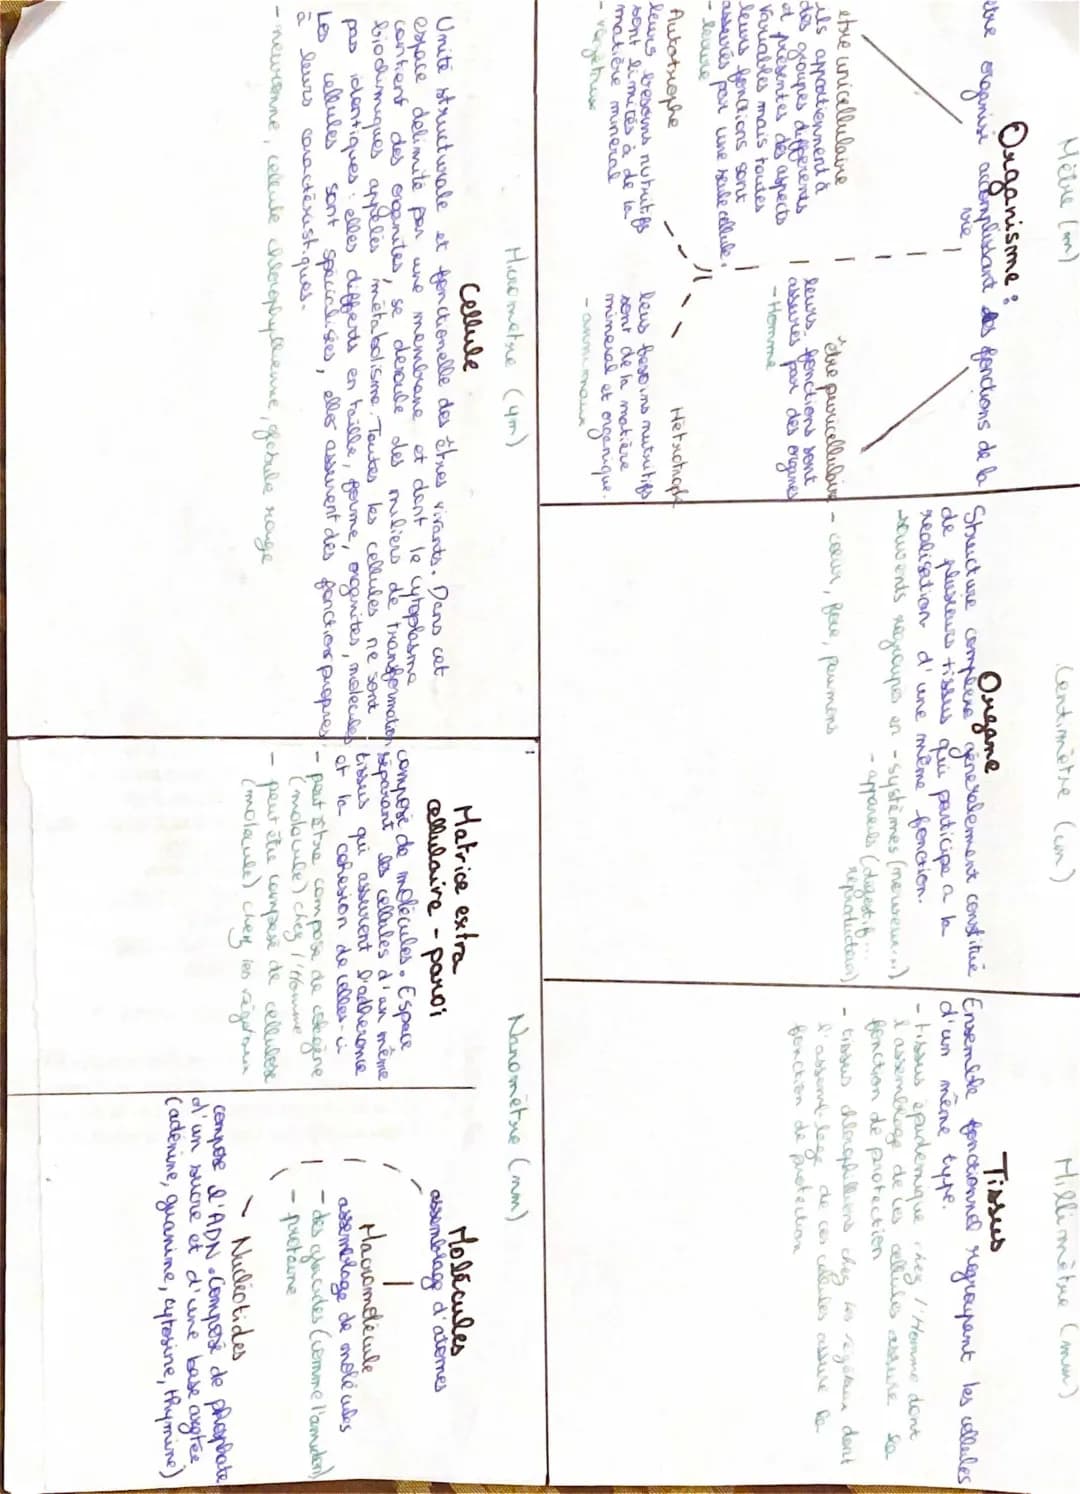 Mètre (m)
Organisme :
être organisé accomplissant des fonctions de la
vie,
être unicellulaire
ils appartiennent à
des groupes différents
et présentes des aspects
variables mais toutes
leurs fonctions sont
assurés par une seule cellule.
- levure
être pluricellulaire
leurs fonctions sont
assures par des organes
- Homme
Autotrophe
leurs besoins nutritifs
sont limités à de la
matière mineral
- végétaux
Hétérotrophe
leurs besoins nutritifs
sont de la matière
mineral et organique.
- animaux
Centimètre (cm)
Organe
Structure complexe généralement constitué
de plusieurs tissus qui participe a la
realisation d'une même fonction.
souvents regroupés en - systèmes (nerveux...)
- appareils (digestif...
reproducteur)
- cœur, foie, poumons
Millimètre (mm)
Tissus
Ensemble fonctionnel regroupant les cellules
d'un même type.
- tissus épidermique chez l'Homme dont
l'assemblage de ces cellules assure sa
fonction de protection
- tissus chlorophylliens chez les végétaux dont
l'assemblage de ces cellules assure la
fonction de protection
Micromètre (μm)
Cellule
Unité structurale et fonctionelle des êtres vivants. Dans cet
espace délimité par une membrane et dont le cytoplasma
contient des organites, se deroule des miliers de transformation
biochimiques appelés métabolisme. Toutes les cellules ne sont
pas identiques : elles différents en taille, forme, organites, molécules
Les cellules sont spécialisées, elles assurent des fonctions propres
à leurs caractéristiques.
- neuronne, cellule chlorophyllienne, globule rouge
Nanomètre (nm)
Matrice extra
cellulaire - paroi
composé de molécules. Espace
séparant les cellules d'un même
tissus qui assurent l'adhérence
et la cohésion de celles-ci
- peut être composé de colagène
(molécule) chez l'Homme
- peut être composé de cellulose
(molécule) chez les végétaux
Molécules
assemblage d'atomes
Macromolécule
assemblage de molécules
- des glucides (comme l'amidon)
- protéine
- Nucléotides
compose l'ADN. Composé de phosphate
d'un sucre et d'une base azotée
(adénine, guanine, cytosine, thymine)